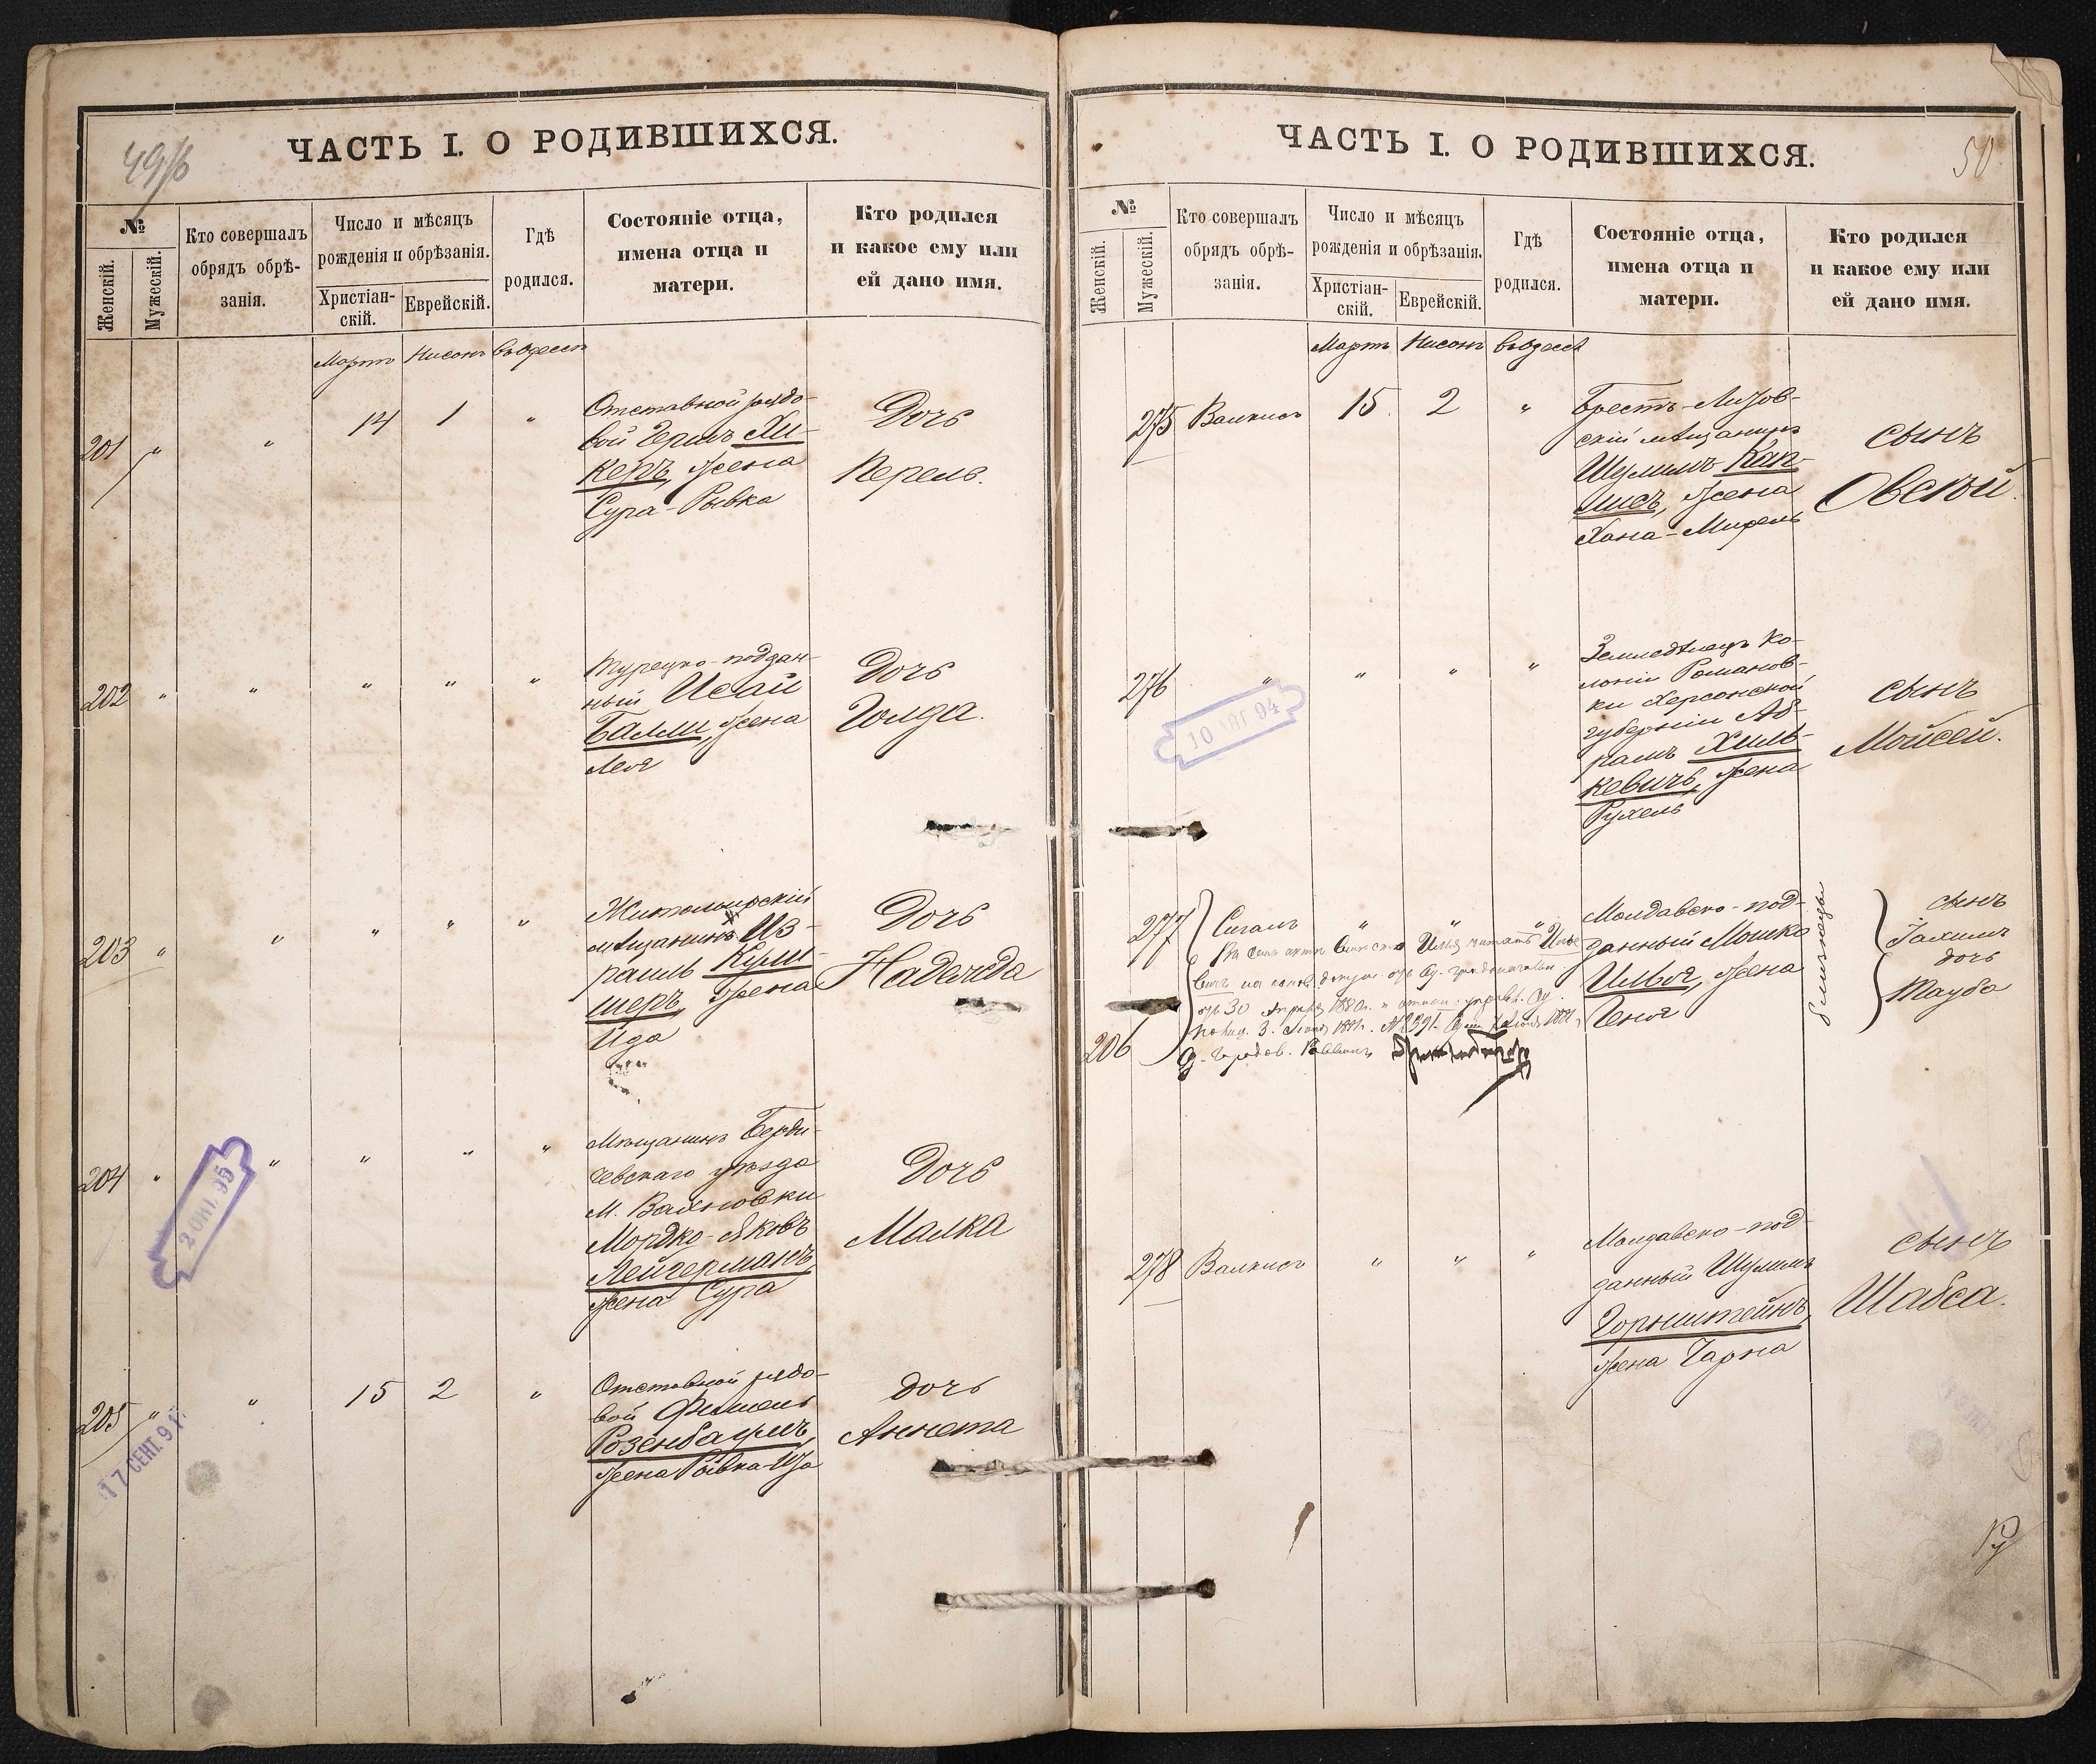 49/б
ЧАСТЬ I. О РОДИВШИХСЯ.
№
Женскій.
Мужескій.
Кто совершалъ
обрядъ обрѣ-
занія.
Число и мѣсяцъ
рожденія и обрѣзанія.
Христіан-
скій.
Еврейскій.
Гдѣ
родился.
Состояніе отца,
имена отца и
матери.
Кто родился
и какое ему или
ей дано имя.
Мартъ Нисонъ въ Одессѣ
201 " " 14 1 "
Отставной рядо-
вой Герцъ Хи-
керъ, жена
Сура-Рывка
Дочь
Перель.
202 " " " " "
Турецко-поддан-
ный Исай
Балли, жена
Лея
Дочь
Голда.
203 " " " " "
Житомирскій
мѣщанинъ Из-
раиль Куш-
меръ, жена
Ида
Дочь
Надежда
204 " " " " "
2 ОКТ. 95
Мѣщанинъ Берди-
чевскаго уѣзда
М. Вахновки
Мордко-Яковъ
Лейдерманъ,
жена Сура
Дочь
Малка
205 " " 15 2 "
17 СЕНТ. 9
Отставной рядо-
вой Фишель
Розенбаумъ,
жена Рывка-Иза
дочь
Аннета
50
ЧАСТЬ I. О РОДИВШИХСЯ.
№
Женскій.
Мужескій.
Кто совершалъ
обрядъ обрѣ-
занія.
Число и мѣсяцъ
рожденія и обрѣзанія.
Христіан-
скій.
Еврейскій.
Гдѣ
родился.
Состояніе отца,
имена отца и
матери.
Кто родился
и какое ему или
ей дано имя.
Мартъ Нисонъ въ Одессѣ
275 Валкисъ 15. 2 "
Брестъ-Литов-
скій мѣщанинъ
Шулимъ Кап-
лисъ, жена
Хана-Мирель
сынъ
Овсей.
276 " " " "
10 АВГ 94
Земледѣлецъ ко-
лоніи Романов-
ки Херсонской
губерніи Аб-
рамъ Хиль-
кевичъ, жена
Рухель
сынъ
Мойсей.
277 Сигалъ " " "
206
30 Апрѣля 1880 г.
3. 1881 г. № 2391.
Городов. Раввинъ
Молдавско-под-
данный Мошко
Илья, жена
Геня
близнецы
сынъ
Хаимъ
дочь
Тауба
278 Валкисъ " " "
Молдавско-под-
данный Шулимъ
Горнштейнъ,
жена Чарна
сынъ
Шабса.